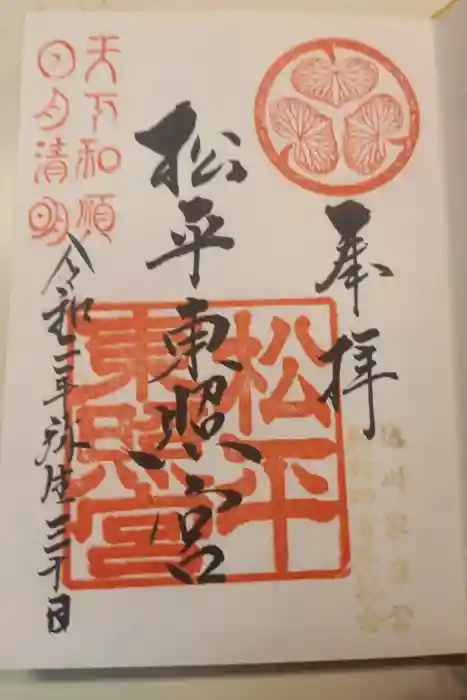 奉拝
松平東照宮
松平
東照宮
天下和順
日月清明
令和二年弥生三十日